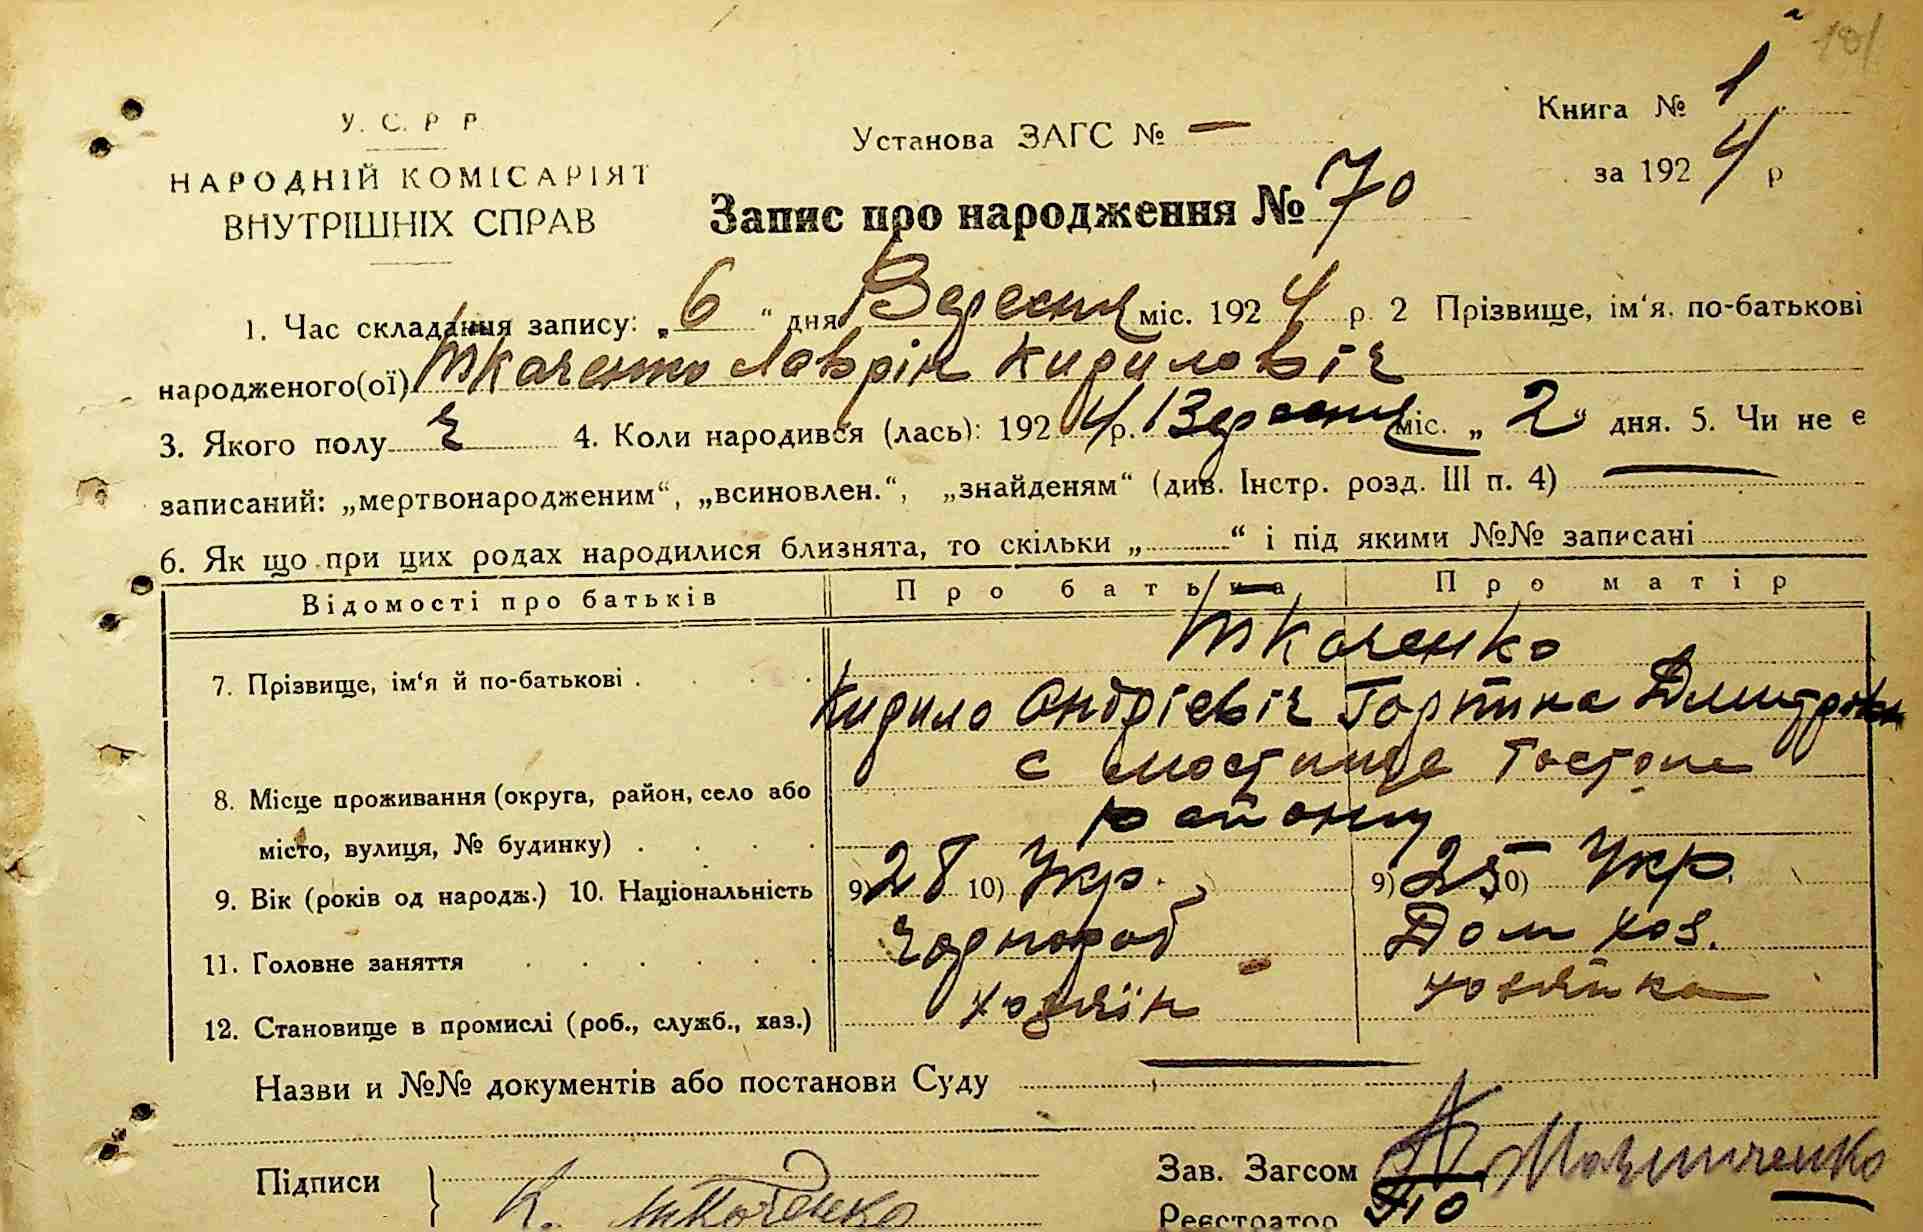 101
У. С. Р Р
НАРОДНІЙ КОМІСАРІЯТ
ВНУТРІШНІХ СПРАВ
Установа ЗАГС № —
Книга № 1
за 1924 р
Запис про народження № 70
1. Час складання запису: „6“ дня Вересня міс. 1924 р. 2 Прізвище, ім‘я, по-батькові
народженого(ої) Ткаченко Лаврін Кирилович
3. Якого полу ч 4. Коли народився (лась): 1924 р. Вересня міс. „2“ дня. 5. Чи не є
записаний: „мертвонародженим“, „всиновлен.“, „знайденям“ (див. Інстр. розд. III п. 4) —
6. Як що при цих родах народилися близнята, то скільки „ “ і під якими №№ записані
Відомості про батьків Про батька Про матір
Ткаченко
7. Прізвище, ім‘я й по-батькові . Кирило Андрієвіч Горпина
с Мостище Гостом
8. Місце проживання (округа, район, село або
району
місто, вулиця, № будинку) .
9. Вік (років од народж.) 10. Національність 9) 28 10) Укр. 9) 25 10) Укр.
11. Головне заняття Чорнороб Дом хоз.
12. Становище в промислі (роб., служб., хаз.) хозяїн хозяйка
Назви и №№ документів або постанови Суду —
Підписи К. Ткаченко
Зав. Загсом
Реєстратор